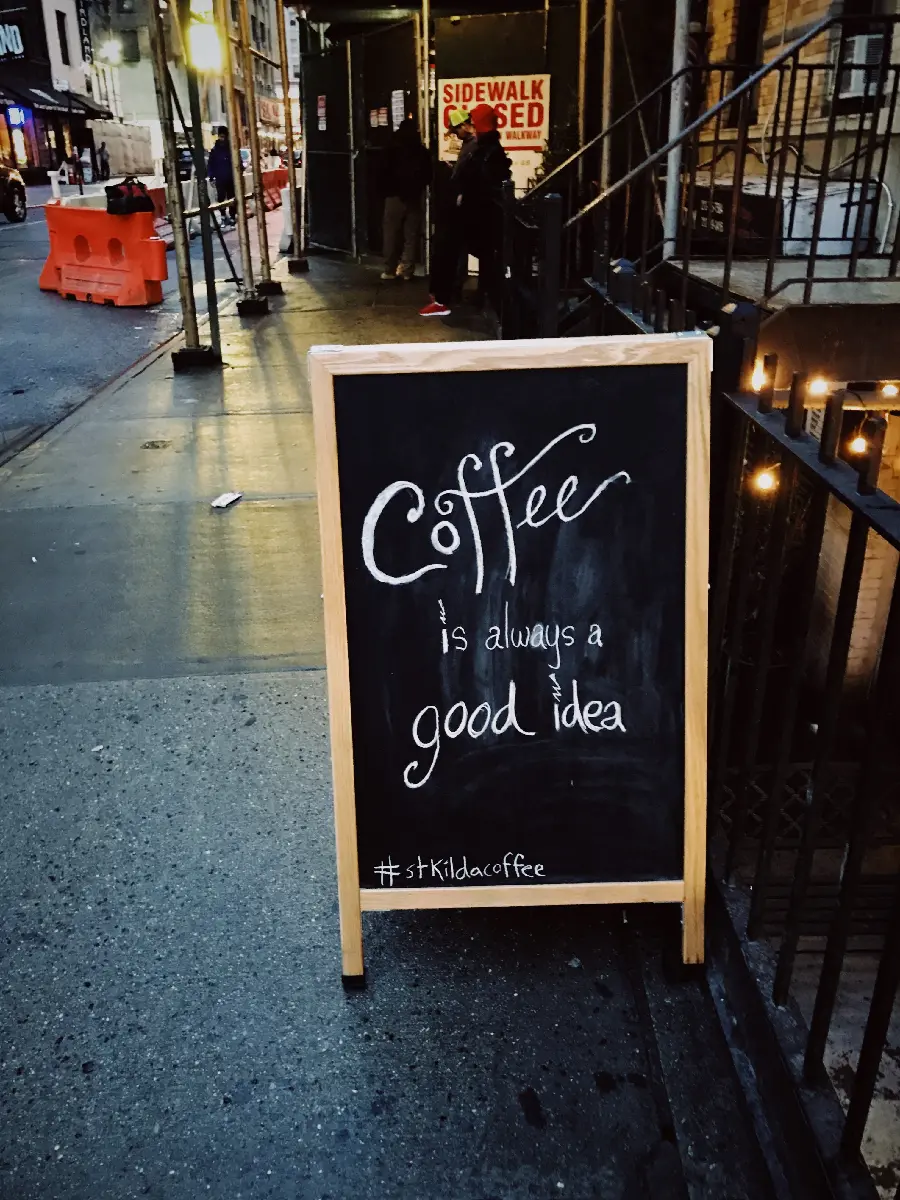 SIDEWALK
CLOSED
WALKWAY
Coffee
is always a
good idea
#stkildacoffee